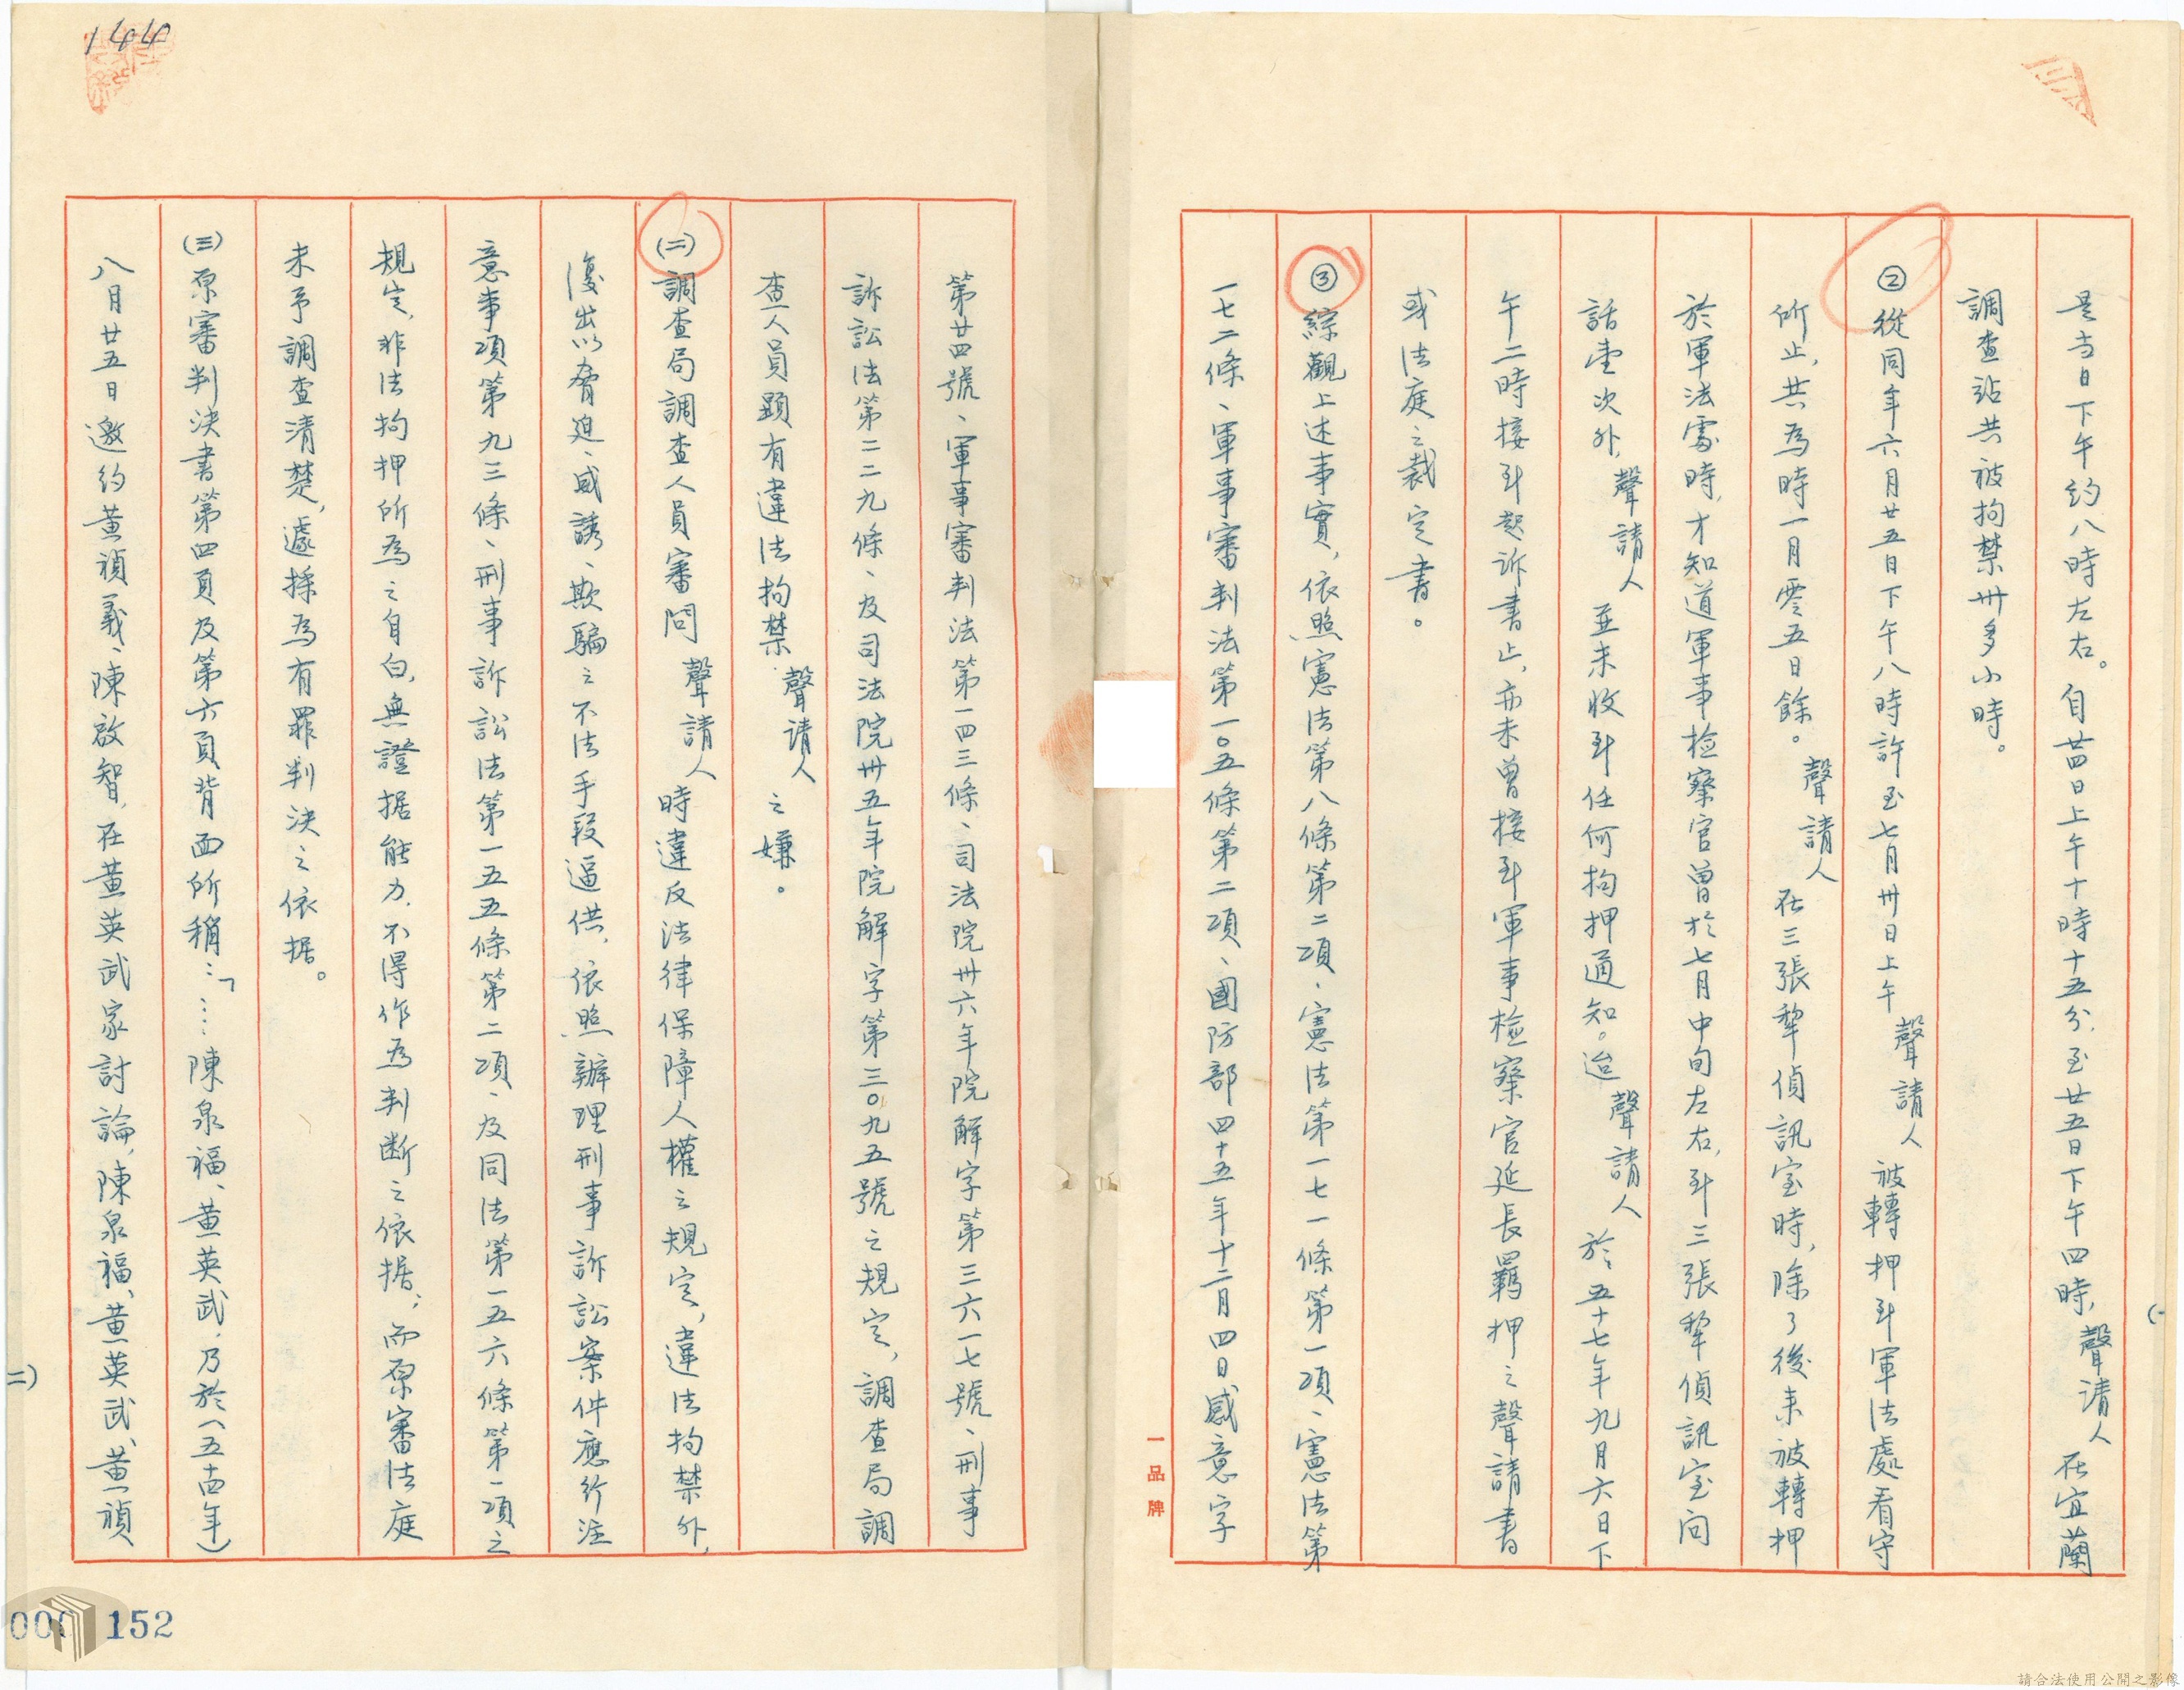 是当日下午約八時左右。自廿四日上午十時十五分，至廿五日下午四時，聲請人在宜蘭
調查站共被拘禁卅多小時。
②從同年六月廿五日下午八時許至七月卅日上午聲請人被轉押到軍法處看守
所止，共為時一月零五日餘。聲請人在三張犂偵訊室時，除了後來被轉押
於軍法處時，才知道軍事檢察官曾於七月中旬左右，到三張犂偵訊室问
話壹次外，聲請人並未收到任何拘押通知。迨聲請人於五十七年九月六日下
午二時接到起訴書止，亦未曾接到軍事檢察官延長羈押之聲請書
或法庭之裁定書。
③綜觀上述事實，依照憲法第八條第二項、憲法第一七一條第一項、憲法第
一七二條、軍事審判法第一〇五條第二項、國防部四十五年十二月四日感意字
一品牌
第廿四號、軍事審判法第一四三條、司法院卅六年院解字第三六一七號、刑事
訴訟法第二二九條、及司法院卅五年院解字第三〇九五號之規定，調查局調
查人員顯有違法拘禁聲请人之嫌。
(二)調查局調查人員審問聲請人時違反法律保障人權之規定，違法拘禁外，
復出以脅迫、威誘、欺騙之不法手段逼供，依照辦理刑事訴訟案件應行注
意事項第九三條、刑事訴訟法第一五五條第二項、及同法第一五六條第一項之
規定，非法拘押所為之自白，無證据能力，不得作為判断之依据；而原審法庭
未予調查清楚，遽採為有罪判决之依据。
(三)原審判决書第四頁及第六頁背面所稱：「……陳泉福、黄英武，乃於（五十四年）
八月廿五日邀約黄禎義、陳啟智，在黄英武家討論，陳泉福、黄英武、黄禎
144
二)
000152
請合法使用公開之影像